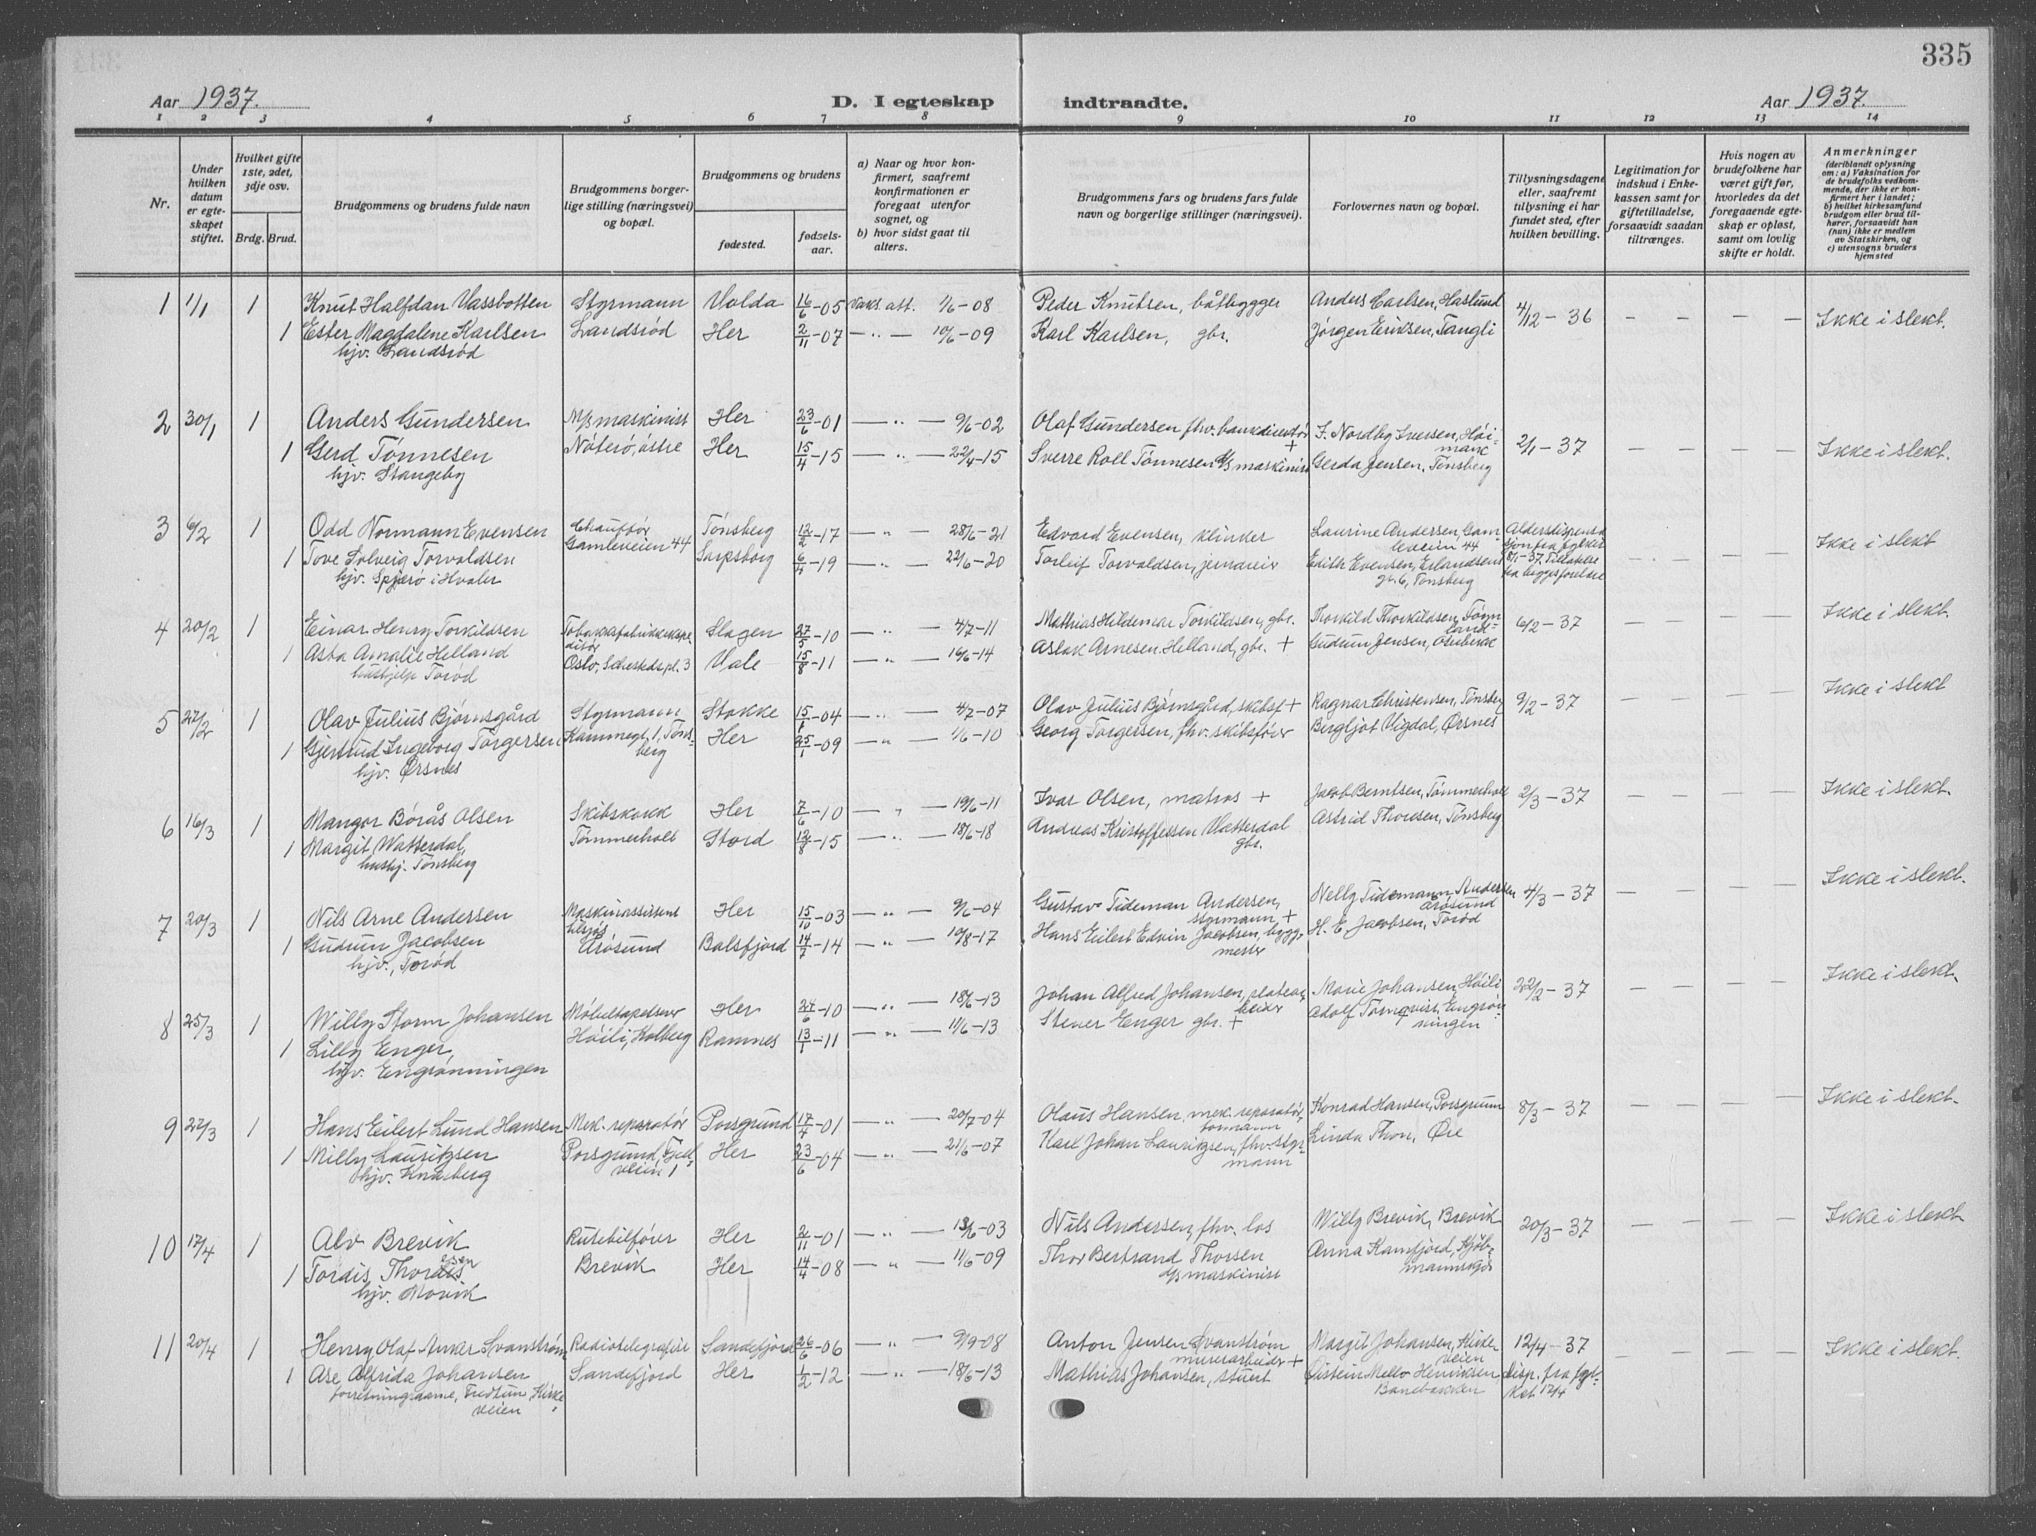 335
Aar 1937.
D. I egteskap indtraadte.
Aar 1937.
1 2 3 4 5 6 7 8 9 10 11 12 13 14
Nr.
Under hvilken datum er egteskapet stiftet.
Hvilket gifte 1ste, 2det, 3dje osv.
Brdg. Brud.
Brudgommens og brudens fulde navn
Brudgommens borgerlige stilling (næringsvei) og bopæl.
Brudgommens og brudens
fødested.
fødselsaar.
a) Naar og hvor konfirmert, saafremt konfirmationen er foregaat utenfor sognet, og
b) hvor sidst gaat til alters.
Brudgommens fars og brudens fars fulde navn og borgerlige stillinger (næringsvei).
Forlovernes navn og bopæl.
Tillysningsdagene eller, saafremt tillysning ei har fundet sted, efter hvilken bevilling.
Legitimation for indskud i Enkekassen samt for giftetilladelse, forsaavidt saadan tiltrænges.
Hvis nogen av brudefolkene har været gift før, hvorledes da det foregaaende egteskap er opløst, samt om lovlig skifte er holdt.
Anmerkninger
(deriblandt oplysning om: a) Vaksination for de brudefolks vedkommende, der ikke er konfirmert her i landet; b) hvilket kirkesamfund brudgom eller brud tilhører, forsaavidt han (hun) ikke er medlem av Statskirken, og c) utensogns bruders hjemsted
1 1/1 1 Knut Halfdan Vassbotten Styrmann Volda 16/6-05 Vaks. att. 1/6-08 Peder Knutsen, båtbygger Anders Carlsen, Haslund 4/12-36 - - - - Ikke i slekt.
1 Ester Magdalene Karlsen Landsrød Her 2/11-07 - " - 10/6-09 Karl Karlsen, gbr. Jørgen Eriksen, Tangli
hjv. Landsrød
2 30/1 1 Anders Gundersen M/s maskinist Her 23/6-01 - " - 9/6-02 Olaf Gundersen fhv. bankdirektør + F. Nordby Iversen, Høimark 2/1-37 - - - - Ikke i slekt.
1 Gerd Tønnesen Nøterø, østre Her 15/4-15 - " - 22/4-15 Sverre Roll Tønnesen d/s maskinist Gerda Jensen, Tønsberg
hjv. Stangeby
3 6/2 1 Odd Normann Evensen Chauffør Tønsberg 12/2-17 - " - 28/6-21 Edvard Evensen, Laurine Andersen, Gamleveien 44 Ikke i slekt
1 Tove Solveig Torvaldsen Gamleveien 44 Sarpsborg 6/4-19 - " - 22/6-20 Torleif Torvaldsen, Edith Evensen, Tønsberg 8/1-37. Tillatelse fra begges foreldre
hjv. Spjærø i Hvaler
4 20/2 1 Einar Henry Torkildsen Slagen 27/5-10 - " - 4/7-11 Mathias Hildemar Torkildsen, gbr. Thorkild Thorkildsen, 6/2-37 - - - Ikke i slekt.
1 Asta Amalie Helland Oslo, Schestedspl. 3 Våle 15/8-11 - " - 16/6-14 Aslak Arnesen Helland, gbr. + Gudrun Jensen,
hushjelp Torød
5 27/2 1 Olav Julius Bjørnsgård Styrmann Stokke 15/1-04 - " - 4/7-07 Olav Julius Bjørnsgård, skibsf + Ragnar Christensen, Tønsberg 9/2-37 - - - Ikke i slekt
1 Gjertrud Ingeborg Torgersen Kammegt. 1, Tønsberg Her 25/1-09 - " - 1/6-10 Georg Torgersen, fhv. skibsfører Bergljot Vigdal, Ørsnes
hjv. Ørsnes
6 16/3 1 Mangor Børås Olsen Skibskokk Her 7/6-10 - " - 19/6-11 Ivar Olsen, matros + Jacob Berntsen, Tømmerholt 2/3-37 - - - Ikke i slekt.
1 Margit Watterdal, Tømmerholt Stord 12/8-15 - " - 18/6-18 Andreas Kristoffersen Vatterdal gbr. Astrid Thoresen, Tønsberg
hushj. Tønsberg
7 20/3 1 Nils Arne Andersen Maskinassistent tilsjøs, Her 15/10-03 - " - 9/6-04 Gustav Tideman Andersen, styrmann, + Nelly Tidemann Andersen Årøsund 4/3-37 - - - Ikke i slekt.
1 Gudrun Jacobsen Årøsund Balsfjord 14/7-14 - " - 10/8-17 Hans Eilert Edvin Jacobsen, byggmester H. E. Jacobsen, Torød
hjv., Torød
8 25/3 1 Willy Storm Johansen Møbeltapetserer Her 24/6-10 - " - 18/6-13 Johan Alfred Johansen, platearbeider Marie Johansen, Høili 22/2-37 - - - Ikke i slekt.
1 Lilly Enger, Høili, Kolberg Ramnes 13/1-11 - " - 11/6-13 Stener Enger gbr. + Adolf Tornqvist, Engrønningen
hjv. Engrønningen
9 22/3 1 Hans Eilert Lund Hansen Mek. reparatør Porsgrund 17/4-01 - " - 20/7-04 Olaus Hansen, mek. reparatør, formann Konrad Hansen, Porsgrunn 8/3-37 - - - Ikke i slekt.
1 Milly Lauritzsen Porsgrund, 1 Her 23/6-04 - " - 21/6-07 Karl Johan Lauritzsen, fhv. styrmann Linda Thon, Øre
hjv. Knarberg
10 17/4 1 Alv Brevik Rutebilfører Her 2/11-01 - " - 13/6-03 Nils Andersen, fhv. los Willy Brevik, Brevik 20/3-37 - - - Ikke i slekt
1 Tordis Thorsen Brevik Her 14/4-08 - " - 11/6-09 Thor Bertrand Thorsen d/s maskinist Anna Kamfjord, Kjøbmannskjær
hjv. Hovik
11 20/4 1 Henry Olaf Anker Svanstrøm Radiotelegrafist Sandefjord 26/6-06 - " - 9/9-08 Anton Jensen Svanstrøm murerarbeider + Margit Johansen, Kirkeveien 12/4-37 - - - Ikke i slekt.
1 Åse Alfrida Johansen Sandefjord Her 1/2-12 - " - 18/6-13 Mathias Johansen, stuert Øistein Mello Henriksen Banebakken disp. fra fylket 12/4
forretningsdame, Tredtun, Kirkeveien